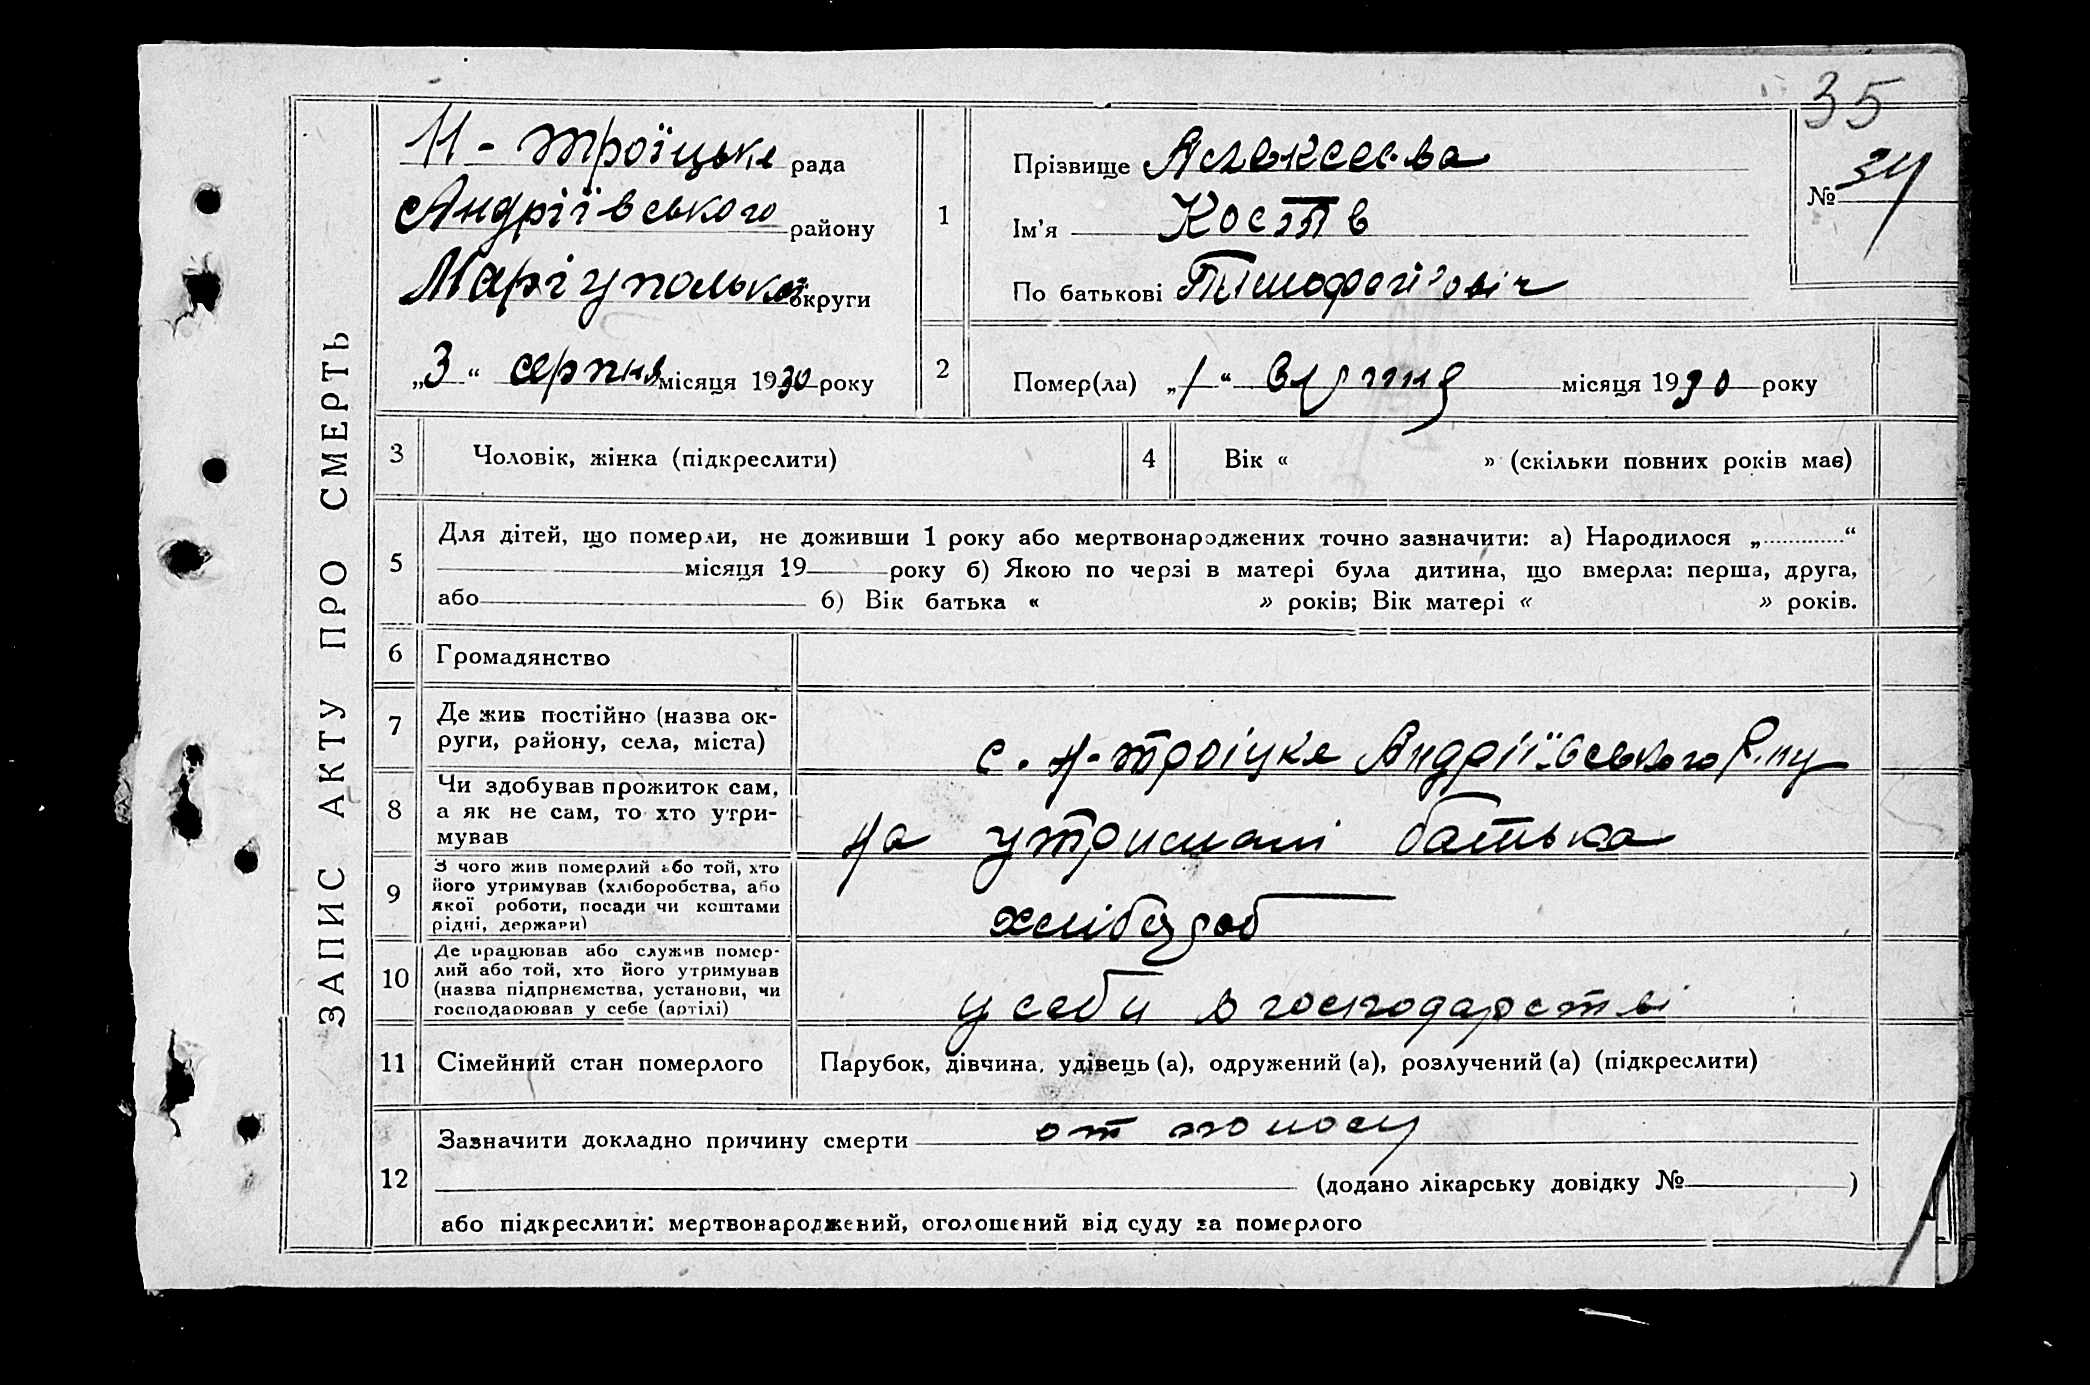 35
ЗАПИС АКТУ ПРО СМЕРТЬ
Н-Троїцьке рада
Андріївського району
Маріупольской округи
„3“ серпня місяця 1930 року
1
Прізвище Алексеева
Ім'я
По батькові Тимофейовіч
№ 34
2
Помер(ла) „1“ серпня місяця 1930 року
3 Чоловік, жінка (підкреслити)
4 Вік « » (скільки повних років має)
5 Для дітей, що померли, не доживши 1 року або мертвонароджених точно зазначити: а) Народилося „ “
місяця 19 року б) Якою по черзі в матері була дитина, що вмерла: перша, друга,
або б) Вік батька « » років; Вік матері « » років.
6 Громадянство
7 Де жив постійно (назва ок-
руги, району, села, міста)
с. Н-Троіцке Андріївського Р.ну
8 Чи здобував прожиток сам,
а як не сам, то хто утри-
мував
на утримані батька
9 З чого жив померлий або той, хто
його утримував (хліборобства, або
якої роботи, посади чи коштами
рідні, держави)
хлібороб
10 Де працював або служив помер-
лий або той, хто його утримував
(назва підприємства, установи, чи
господарював у себе (артілі)
у себи в господарстві
11 Сімейний стан померлого
Парубок, дівчина, удівець (а), одружений (а), розлучений (а) (підкреслити)
12 Зазначити докладно причину смерти от поносу
(додано лікарську довідку № )
або підкреслити: мертвонароджений, оголошений від суду за померлого